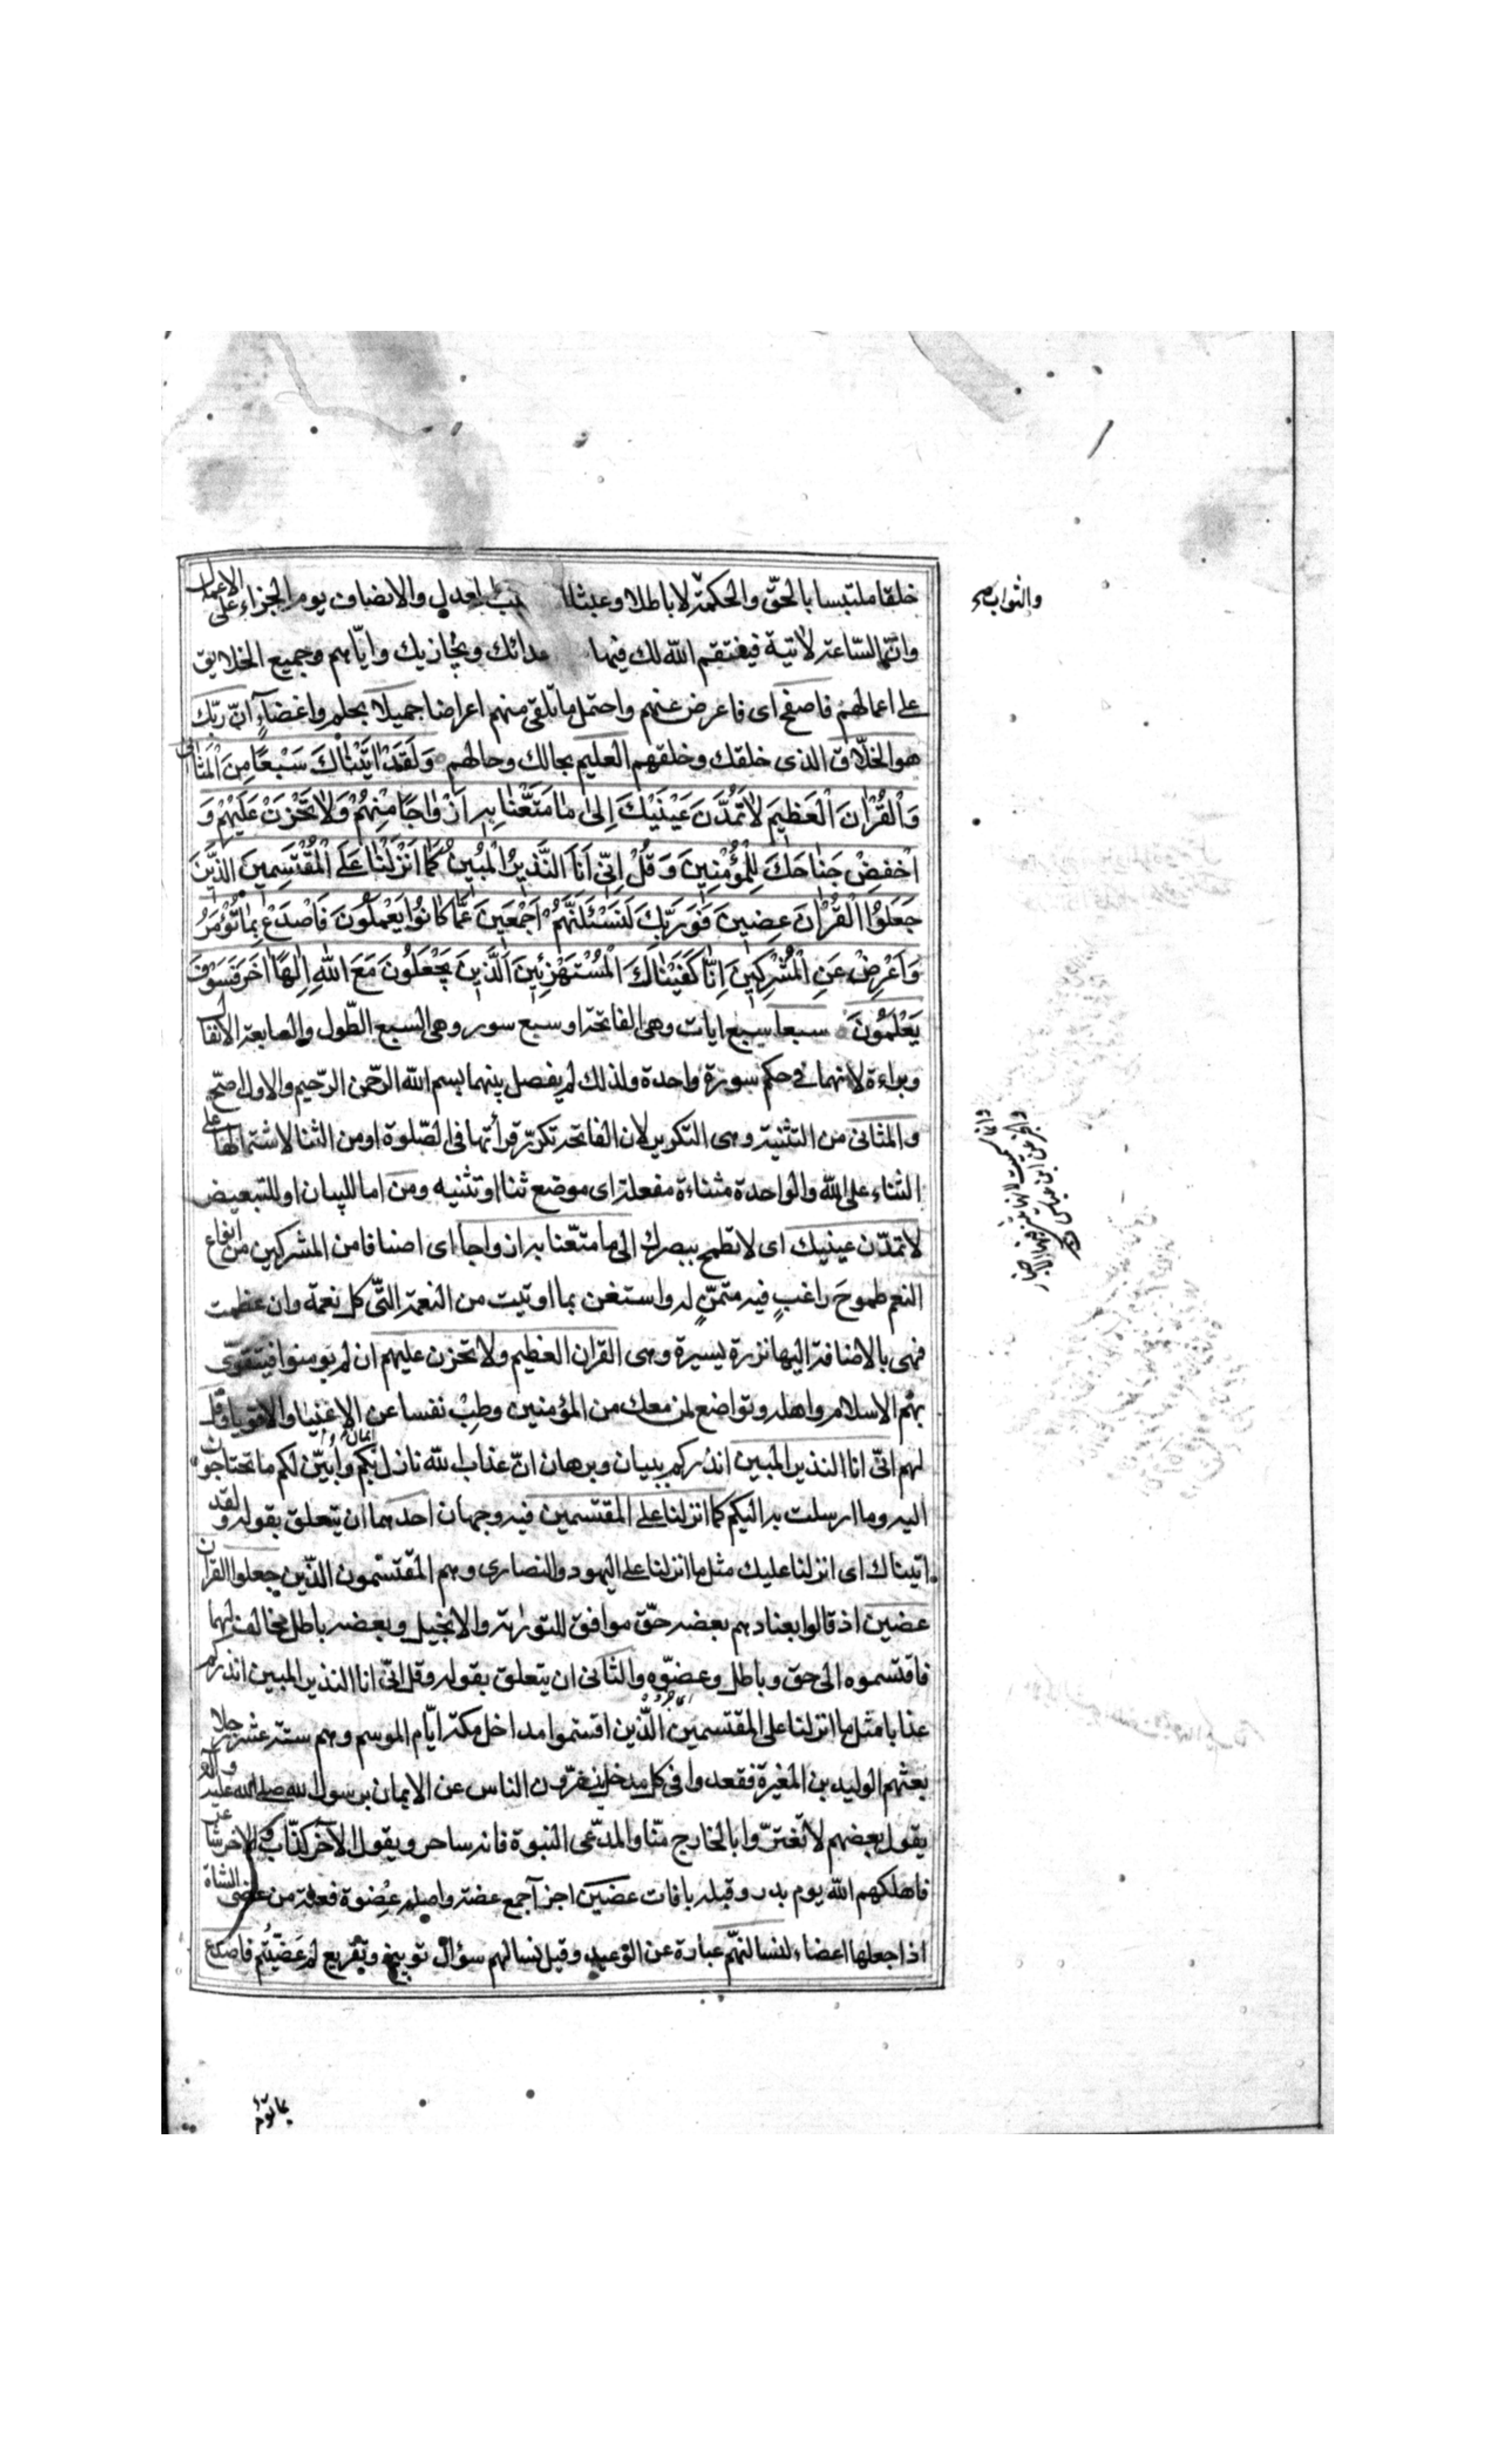 خلقا ملتبسا بالحقّ والحكمة لا باطلا وعبثا العدل والانصاف يوم الجزاء على الاعمال
والثواب صح
وانّ السّاعة لاتية فينتقم الله لك فيها ويجازيك وايّاهم وجميع الخلايق
على اعمالهم فاصفح اى فاعرض عنهم واحتمل ما تلقى منهم اعراضا جميلا بحلم واغضاءٍ انّ ربّك
هو الخلّاق الذى خلقك وخلقهم العليم بحالك وحالهم وَلَقَدْ اتَيْنٰاكَ سَبْعًا مِنَ الْمَثَانى
وَالْقُرْانَ الْعَظيمَ لٰا تَمُدَّنَ عَيْنَيْكَ اِلىٰ مٰا مَتَّعْنٰا بِهِ اَزْوٰاجًا مِنْهُمْ وَلٰا تَحْزَنْ عَلَيْهِمْ وَ
اخْفِضْ جَنٰاحَكَ لِلْمُؤْمِنِينَ وَقُلْ اِنّى اَنَا النَّذيرُ الْمُبينُ كَمٰا اَنْزَلْنٰا عَلَى الْمُقْتَسِمينَ الَّذينَ
جَعَلُوا الْقُرْانَ عِضينَ فَوَرَبِّكَ لَنَسْئَلَنَّهُمْ اَجْمَعينَ عَمّٰا كٰانُوا يَعْمَلُونَ فَاصْدَعْ بِمٰا تُؤْمَرُ
وَاَعْرِضْ عَنِ الْمُشْرِكينَ اِنّٰا كَفَيْنٰاكَ الْمُسْتَهْزِئينَ اَلَّذينَ يَجْعَلُونَ مَعَ اللهِ اِلٰهًا اخَرَ فَسَوْفَ
يَعْلَمُونَ سبعا سبع ايات وهى الفاتحة او سبع سور وهى السبع الطّول والسابعة الانفال
وبراءة لانهما فى حكم سورة واحدة ولذلك لم يفصل بينهما بسم الله الرّحمن الرّحيم والاول اصحّ
والمثانى من التثنية وهى التكرير لان الفاتحة تكرّر قرأتها فى الصّلوة او من الثنا لاشتمالها على
الثناء على الله والواحدة مثناة مفعلة اى موضع ثنا او تثنيه ومن اما للبيان او للتبعيض
لا تمدّن عينيك اى لا تطمح ببصرك الى ما متّعنا به ازواجا اى اصنافا من المشركين من انواع
النعم طموحَ راغبٍ فيه متمنٍّ له واستغن بما اوتيت من النعمة التّى كل نعمة وان عظمت
فهى بالاضافة اليها نزرة يسيرة وهى القران العظيم ولا تحزن عليهم ان لم يومنوا فيتقوّى
بهم الاسلام واهله وتواضع لمن معك من المؤمنين وطِبْ نفسا عن الاغنيا والاقويا وقل
لهم انّى انا النذير المبين انذركم ببيان وبرهان انّ عذاب الله نازل بكم وأبيّن لكم ما تحتاجون
اليه وما ارسلت به اليكم كما انزلنا على المقتسمين فيه وجهان احدهما ان يتعلق بقوله ولقد
اتيناك اى انزلنا عليك مثل ما انزلنا على اليهود والنصارى وهم المقتسمون الذّين جعلوا القران
عضين اذ قالوا بعنادهم بعضه حقّ موافق للتورٰية والانجيل وبعضه باطل مخالف لهما
فاقتسموه الى حق وباطل وعضّوه والثانى ان يتعلق بقوله وقل انّى انا النذير المبين انذركم
عذابا مثل ما انزلنا على المقتسمين الذّين اقتسموا مداخل مكة ايّام الموسم وهم ستة عشر رجلا
بعثهم الوليد بن المغيرة فقعدوا فى كل مدخل ينفرّون الناس عن الايمان برسول الله صلى الله عليه واله
يقول بعضهم لا تغترّوا بالخارج منّا والمدّعى النبوة فانه ساحر ويقول الآخر كذّاب والاخر شاعر
فاهلكهم الله يوم بدر وقبله بافات عضين اجزآ جمع عضة واصله عِضوة فعلة من عضى الشاة
اذا جعلها اعضاء لنسالنهّم عبارة عن الوعيد وقيل نسالهم سؤال توبيخ وتقريع لم عَضّيْتُم فاصدع
بما تؤمر